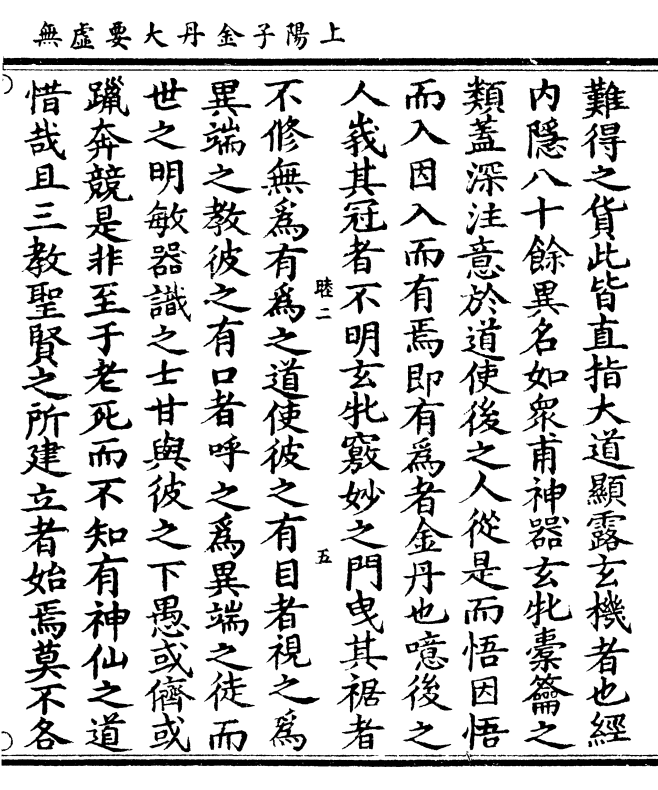 上陽子金丹大要虛無
難得之貨此皆直指大道顯露玄機者也經
内隱八十餘異名如衆甫神器玄牝橐籥之
類蓋深注意於道使後之人從是而悟因悟
而入因入而有焉即有爲者金丹也噫後之
人峩其冠者不明玄牝竅妙之門曳其裾者
睦二
五
不修無爲有爲之道使彼之有目者視之爲
異端之教彼之有口者呼之爲異端之徒而
世之明敏器識之士甘與彼之下愚或儕或
躐奔競是非至于老死而不知有神仙之道
惜哉且三教聖賢之所建立者始焉莫不各